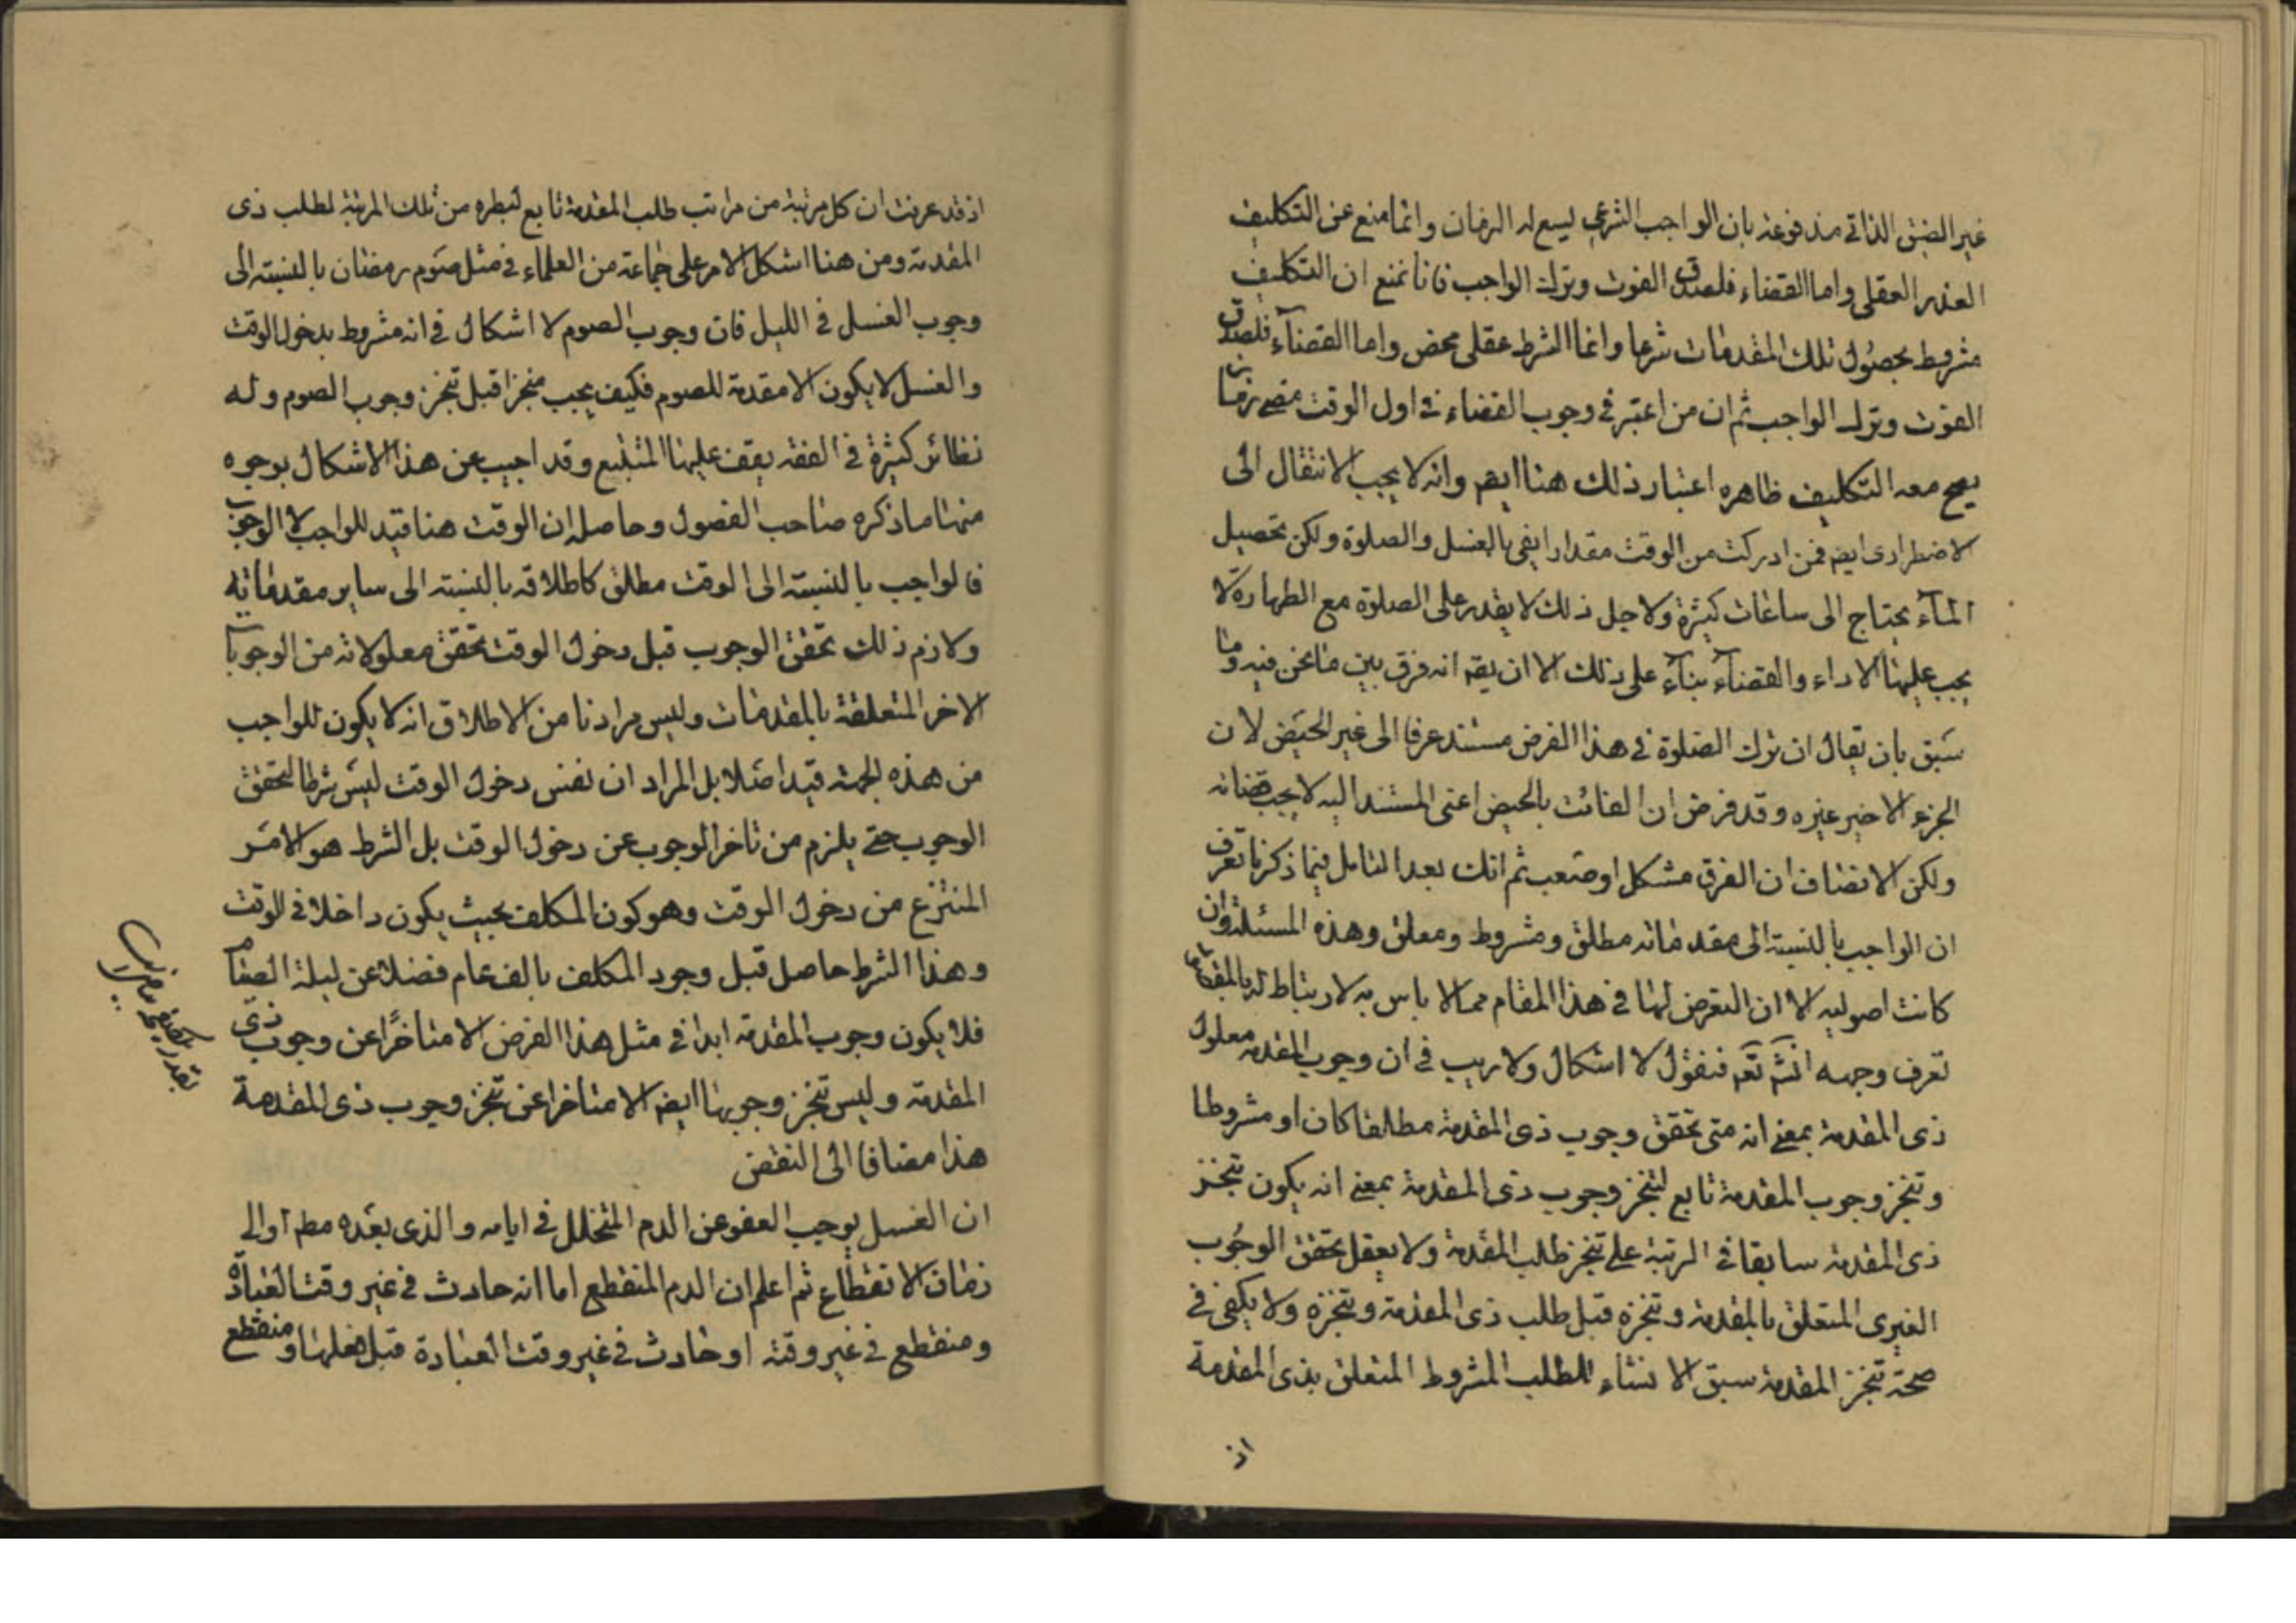 غير الضيق الذاتي مدفوعة بان الواجب الشرعي ليسع له الزمان وانما منع عن التكليف
العذر العقلي واما القضاء فلصدق الفوت وترك الواجب فانا نمنع ان التكليف
مشروط بحصول تلك المقدمات شرعا وانما الشرط عقلي محض واما القضاء فلصدق
الفوت وترك الواجب ثم ان من اعتبر في وجوب القضاء في اول الوقت مضي زمان
يصح معه التكليف ظاهره اعتبار ذلك هنا ايضا وانه لا يجب الانتقال الى
الاضطرارى ايضا فمن ادركت من الوقت مقدارا يفي بالغسل والصلوة ولكن تحصيل
المآء يحتاج الى ساعات كثيرة ولاجل ذلك لا يقدر على الصلوة مع الطهارة لا
يجب عليها الاداء والقضآء بنآء على ذلك الا ان يقم انه فرق بين ما نحن فيه وما
سبق بان يقال ان ترك الصلوة في هذا الفرض مستند عرفا الى غير الحيض لان
الجزء الاخير غيره وقد فرض ان الفائت بالحيض اعني المستند اليه لا يجب قضائه
ولكن الانصاف ان الفرق مشكل او صعب ثم انك بعد التامل فيما ذكرنا تعرف
ان الواجب بالنسبة الى مقدماته مطلق ومشروط ومعلق وهذه المسئلة وان
كانت اصوليه الا ان التعرض لها في هذا المقام مما لا باس به لارتباط له بالمقام
تعرف وجهه انشم تعم فنقول لا اشكال ولا ريب في ان وجوب المقدمة معلول
ذى المقدمة بمعنى انه متى تحقق وجوب ذى المقدمة مطلقا كان او مشروطا
وتنجز وجوب المقدمة تابع لتنجز وجوب ذى المقدمة بمعنى انه يكون تنجز
ذى المقدمة سابقا في الرتبة على تنجز طلب المقدمة ولا يعقل تحقق الوجوب
الغيرى المتعلق بالمقدمة وتنجزه قبل طلب ذى المقدمة وتنجزه ولا يكفى في
صحة تنجز المقدمة سبق الانشاء للطلب المشروط المتعلق بذى المقدمة
اذ
اذ قد عرفت ان كل مرتبة من مراتب طلب المقدمة تابع لنظيره من تلك المرتبة لطلب ذى
المقدمة ومن هنا اشكل الامر على جماعة من العلماء في مثل صوم رمضان بالنسبة الى
وجوب الغسل في الليل فان وجوب الصوم لا اشكال في انه مشروط بدخول الوقت
والغسل لا يكون الا مقدمة للصوم فكيف يجب منجزا قبل تنجز وجوب الصوم وله
نظائر كثيرة في الفقه يقف عليها المتتبع وقد اجيب عن هذا الاشكال بوجوه
منها ما ذكره صاحب الفصول وحاصله ان الوقت هنا قيد للواجب لا الوجوب
فالواجب بالنسبة الى الوقت مطلق كاطلاقه بالنسبة الى ساير مقدماته
ولازم ذلك تحقق الوجوب قبل دخول الوقت تحقق معلولاته من الوجوبات
الاخر المتعلقة بالمقدمات وليس مرادنا من الاطلاق انه لا يكون للواجب
من هذه الجهة قيد اصلا بل المراد ان نفس دخول الوقت ليس شرطا لتحقق
الوجوب حتى يلزم من تاخر الوجوب عن دخول الوقت بل الشرط هو الامر
المنتزع من دخول الوقت وهو كون المكلف بحيث يكون داخلا في الوقت
وهذا الشرط حاصل قبل وجود المكلف بالف عام فضلا عن ليلة الصيام
فلا يكون وجوب المقدمة ابدا في مثل هذا الفرض الا متاخرا عن وجوب ذى
المقدمة وليس تنجز وجوبها ايضا الا متاخرا عن تنجز وجوب ذى المقدمة
هذا مضافا الى النقض
ان الغسل يوجب العفو عن الدم المتخلل في ايامه والذى بعده مطم او الى
زمان الانقطاع ثم اعلم ان الدم المنقطع اما انه حادث في غير وقت العبادة
ومنقطع في غير وقته او حادث في غير وقت العبادة قبل فعلها ومنقطع